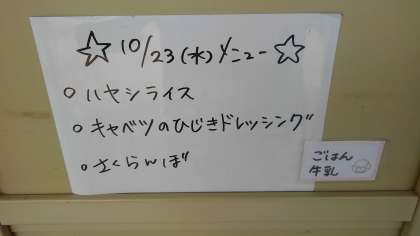 ☆ 10/23(水) メニュー ☆
○ ハヤシライス
○ キャベツのひじきドレッシング
○ さくらんぼ
ごはん
牛乳